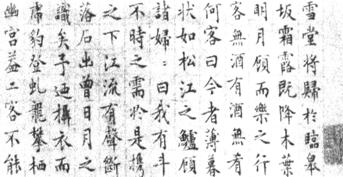 雪堂將歸於臨皋
坂霜露既降木葉
明月顧而樂之行
客無酒有酒無肴
何客曰今者薄暮
狀如松江之鱸顧
諸婦〻曰我有斗
不時之需於是攜
之下江流有聲斷
落石出曾日月之
識矣予迺攝衣而
虎豹登虬龍攀栖
幽宮蓋二客不能